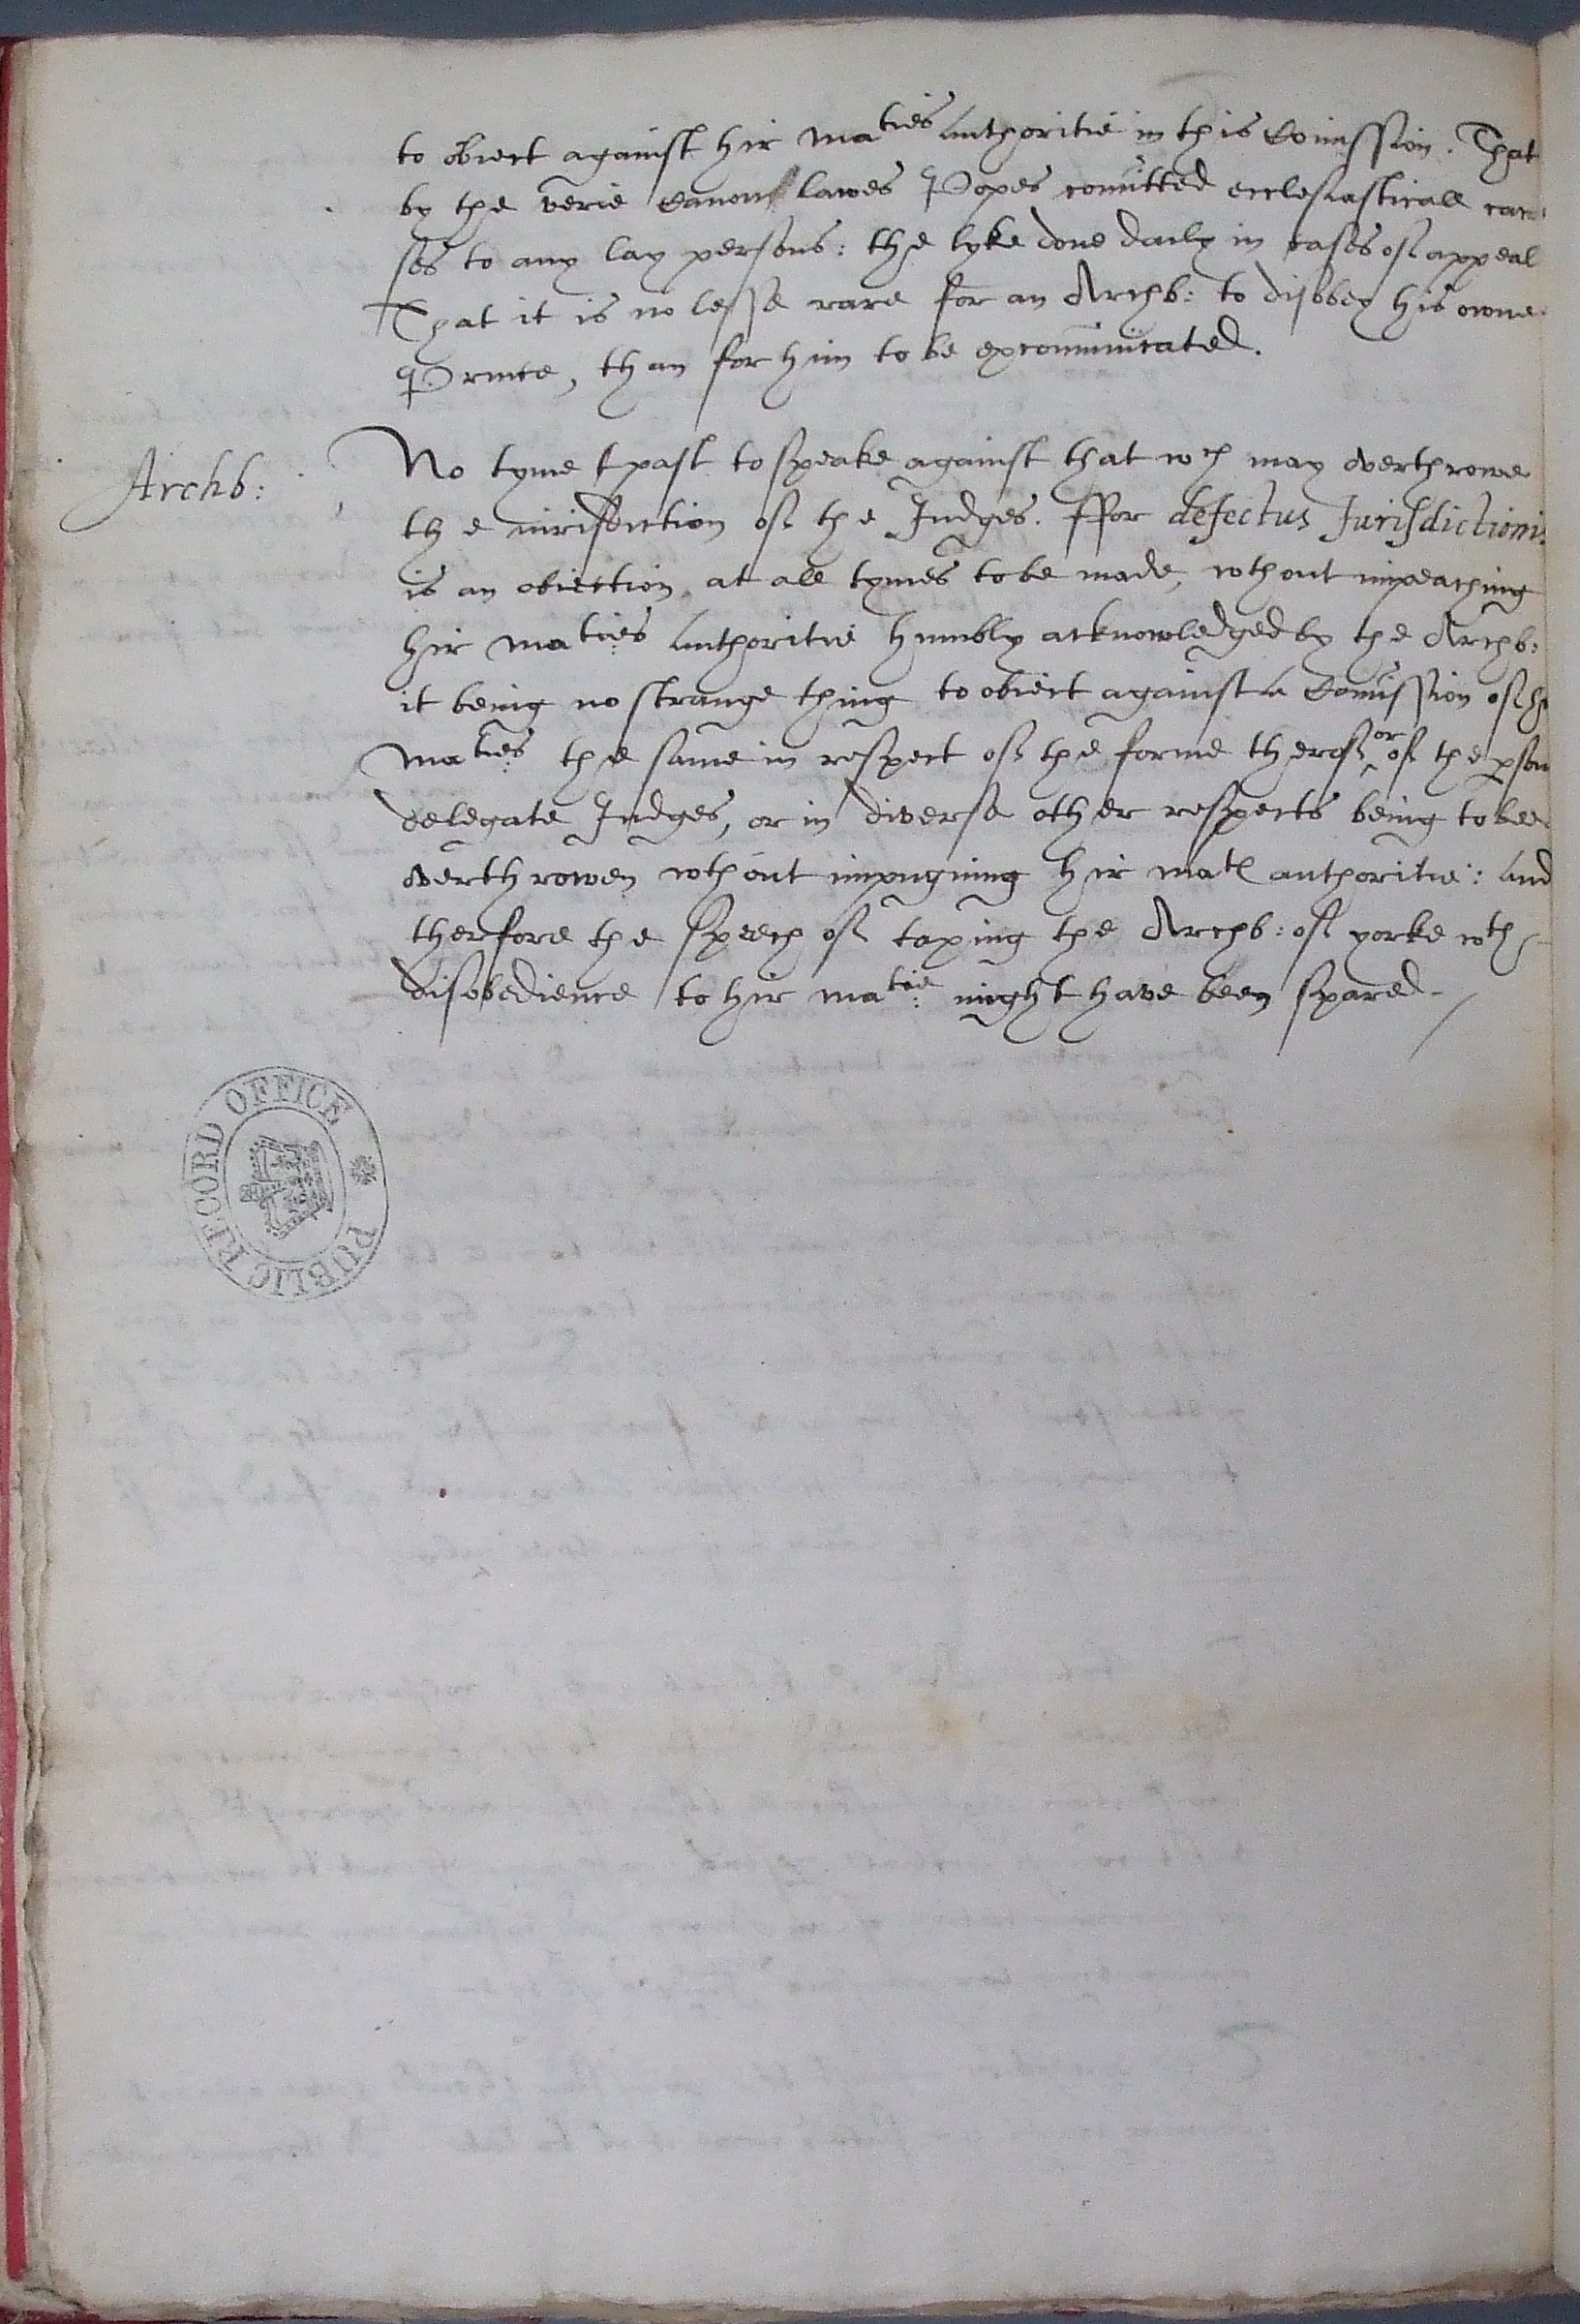 to obiect against hir maties authoritie in this Comission. That
by the verie Canon lawes Popes comitted ecclesiasticall cau
ses to any lay persons: the lyke done daily in cases of appeal
That it is no lesse rare for an Archb: to disobey his owne
Prince, than for him to be excommunicated.
Archb:
No tyme past to speake against that wch may overthrowe
the iurisdiction of the Judges. ffor defectus Jurisdictionis
is an obiection at all tymes to be made, wthout impeaching
hir maties authoritie humbly acknowledged by the Archb:
it being no strange thing to obiect against a Comission of
maties the same in respect of the forme therof or of the pson
delegate Judges, or in diverse other respects being to bee
overthrowen wthout impugning hir mats authoritie: and
therfore the speech of taxing the Archb: of yorke wth
disobedience to hir matie might have been spared
PUBLIC RECORD OFFICE